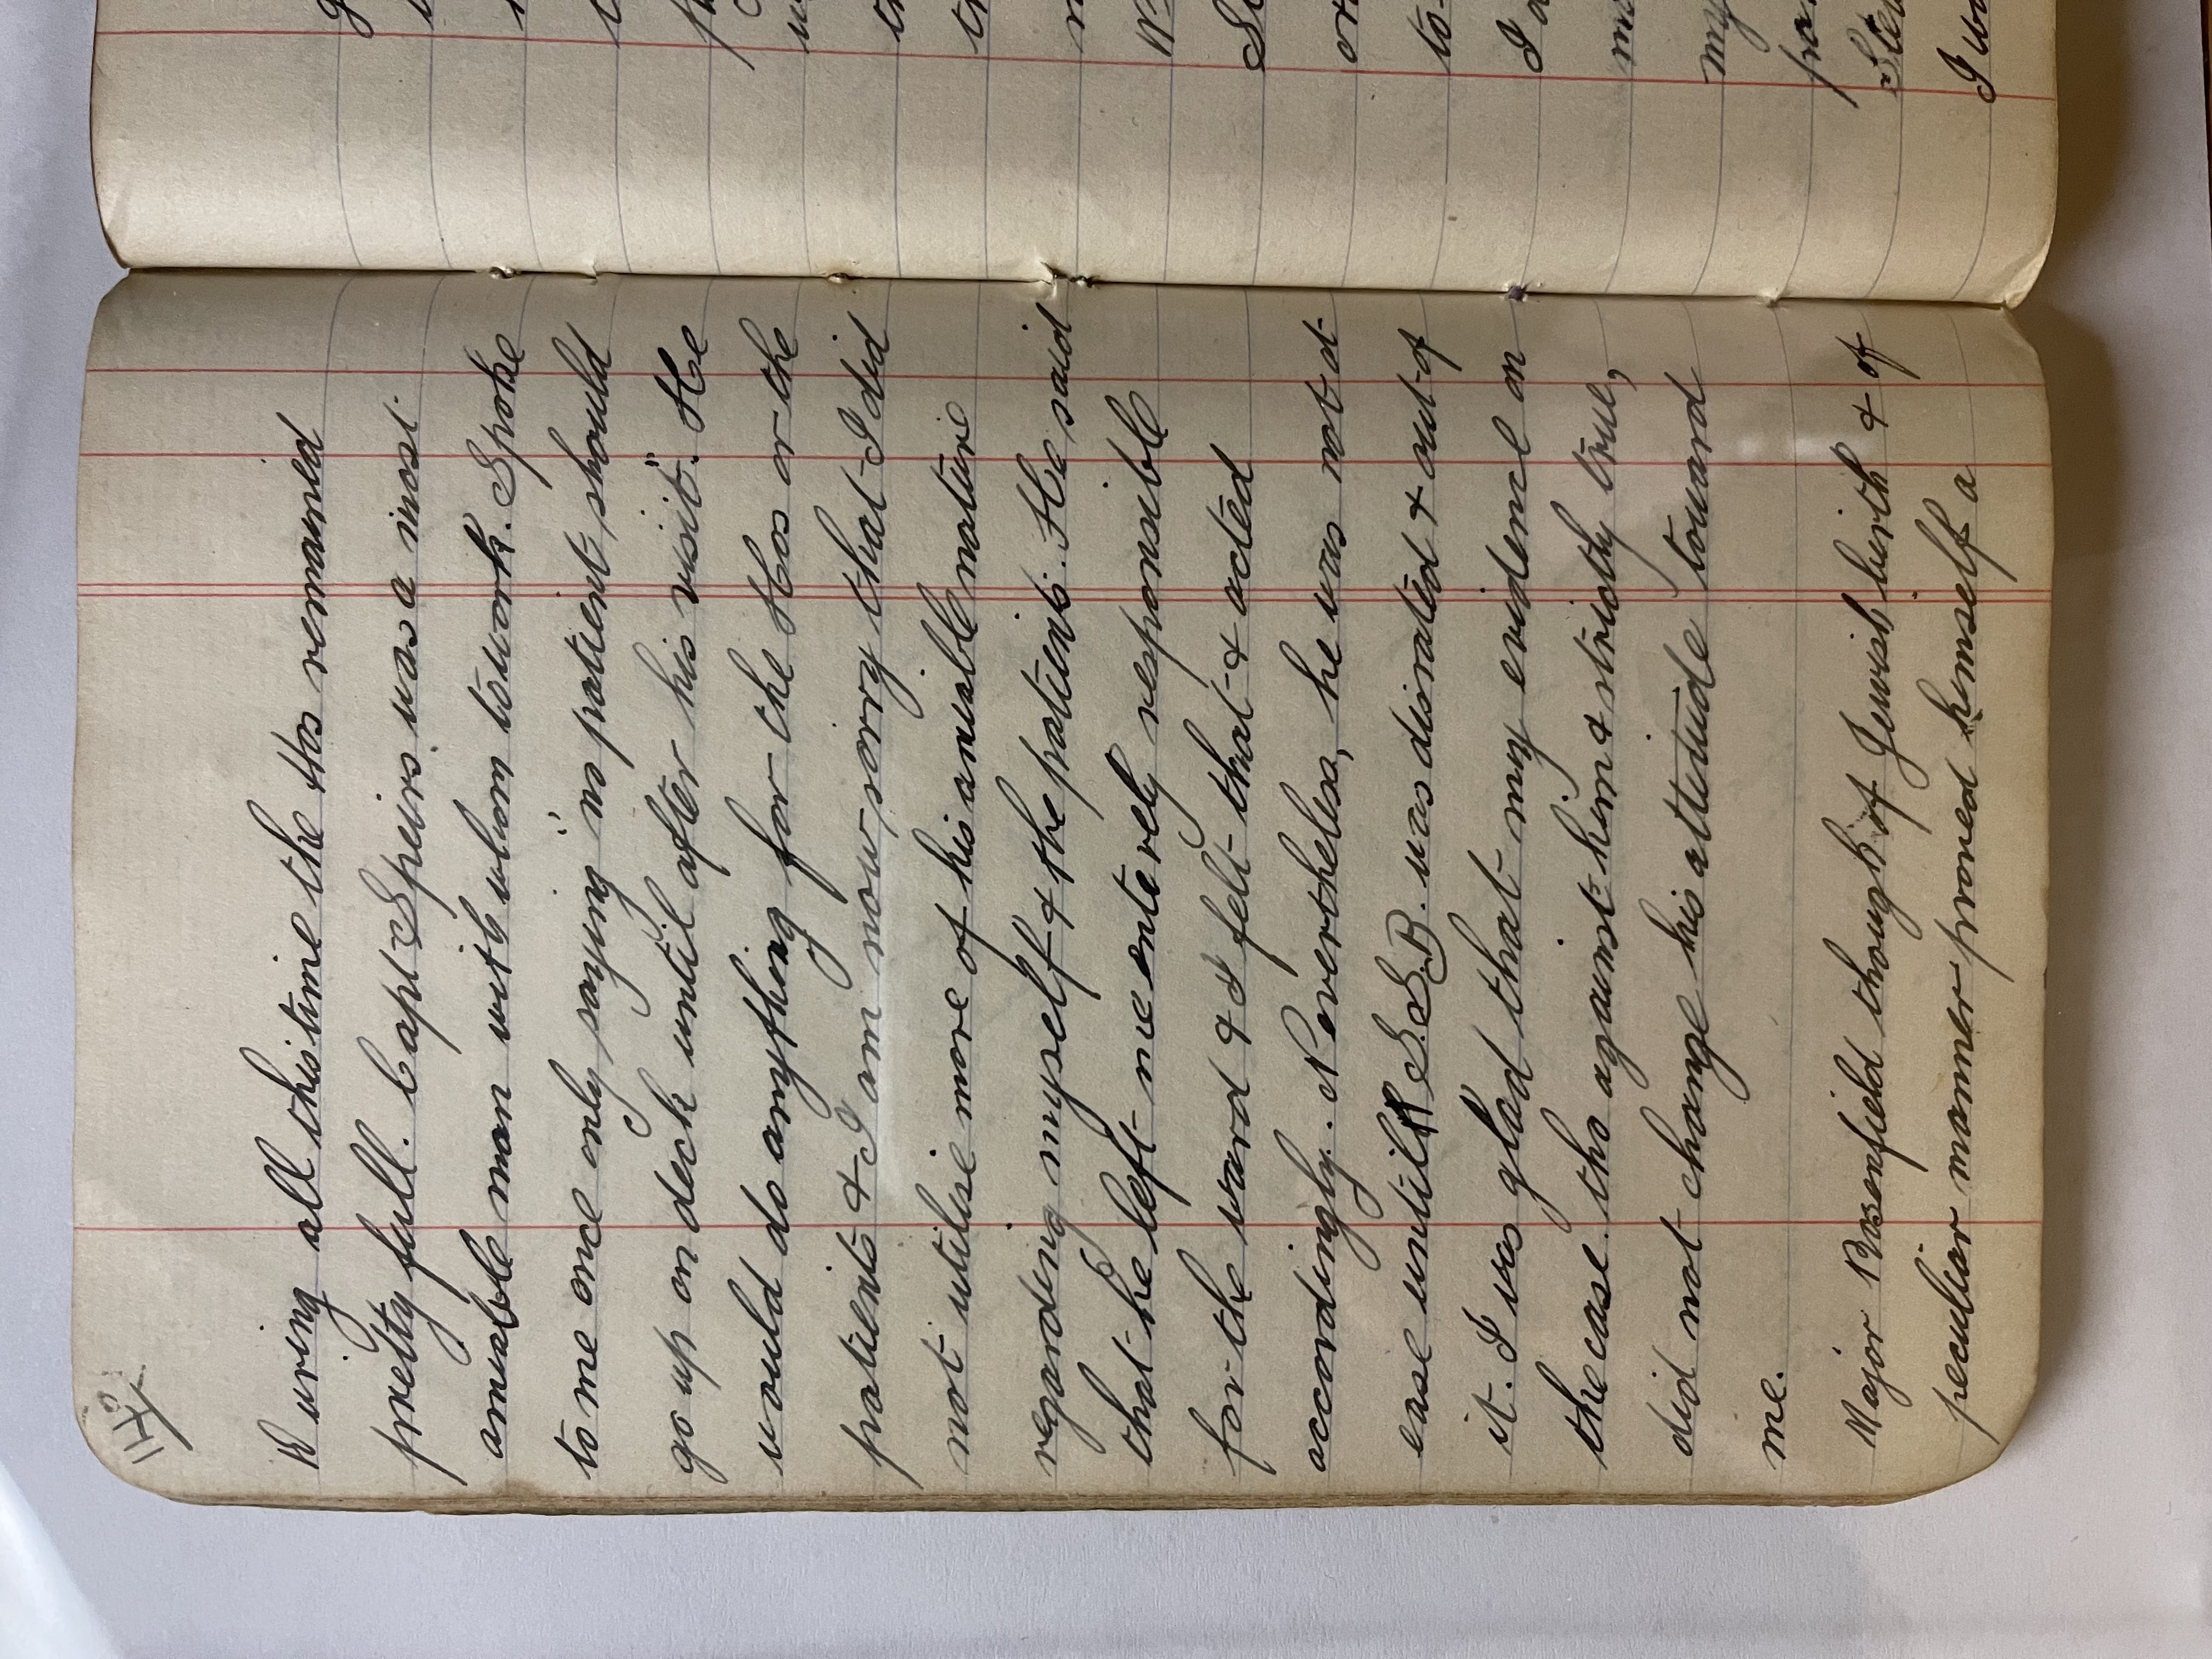 114
During all this time the Hos remained
pretty full. Capt Speirs was a most
amiable man with whom to work. Spoke
to me once only saying "no patient should
go up on deck until after his visit". He
would do anything for the Hos or the
patients & I am now sorry that I did
not utilise more of his amiable nature
regarding myself & the patients. He said
that he left me entirely responsible
for the ward & I felt that & acted
accordingly. Nevertheless, he was not at
ease until R.S.B. was disrated & out of
it. I was glad that my evidence on
the case. tho against him & strictly true,
did not change his attitude toward
me.
Major Rosenfield though of Jewish birth & of
peculiar manner proved himself a